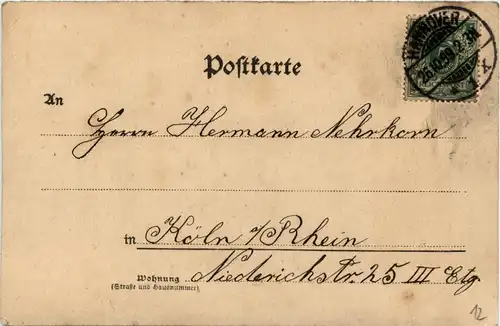 HANNOVER
Postkarte
An
Herrn Hermann Nehrkorn
in Köln a/Rhein
Wohnung
(Straße und Hausnummer)
Niederichstr. 25 III Etg
12